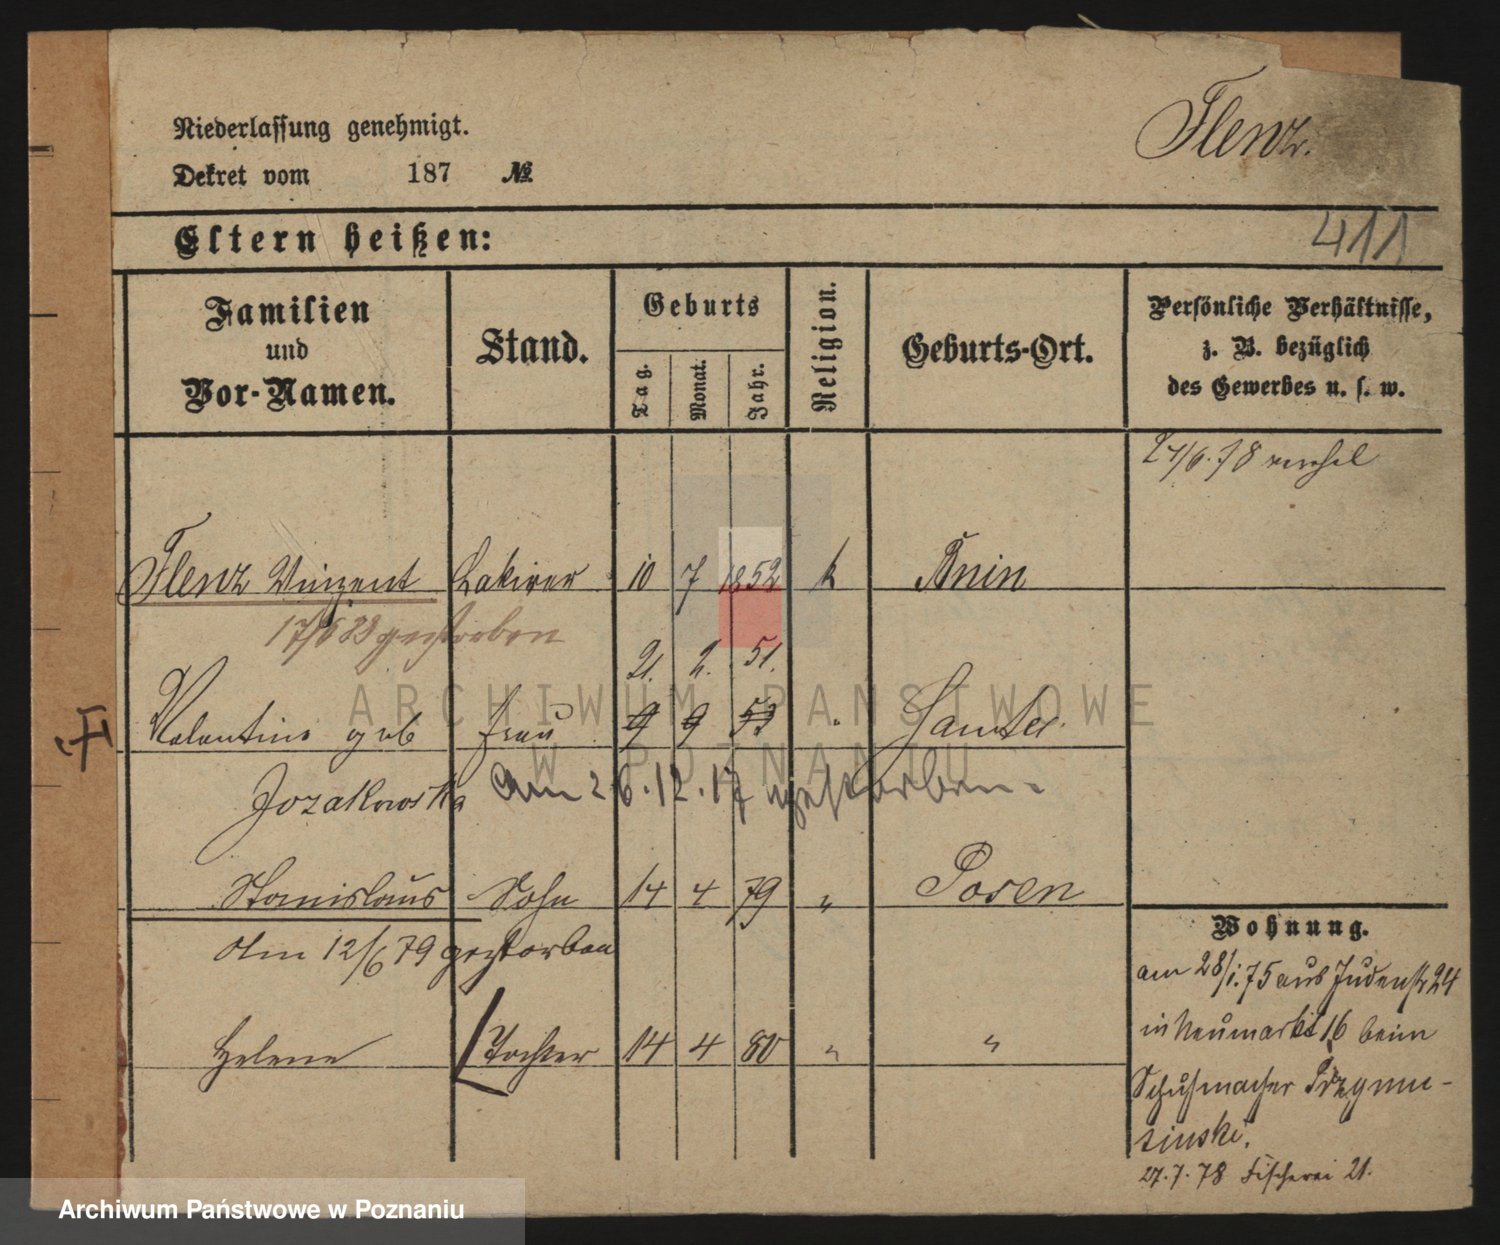 Niederlassung genehmigt.
Dekret vom 187 №
Flenz.
411
Eltern heißen:
Familien
und
Vor-Namen.
Stand.
Geburts
Tag.
Monat.
Jahr.
Religion.
Geburts-Ort.
Persönliche Verhältnisse,
z. B. bezüglich
des Gewerbes u. s. w.
27/6. 78
Flenz Vinzent Lakirer 10 7 1852 k Knin
gestorben
21. 2. 51.
Valentine geb Frau 9 9 53 " Samter
Jozakowska am 26.12.17 gestorben
Stanislaus Sohn 14 4 79 " Posen
Am 12/6 79 gestorben
Helene Tochter 14 4 80 " "
Wohnung.
am 28/1. 75 aus Judenstr 24
in Neumarkt 16 beim
Schuhmacher
sinski.
27. 7. 78 Fischerei 21.
ARCHIWUM PAŃSTWOWE
W POZNANIU
Archiwum Państwowe w Poznaniu